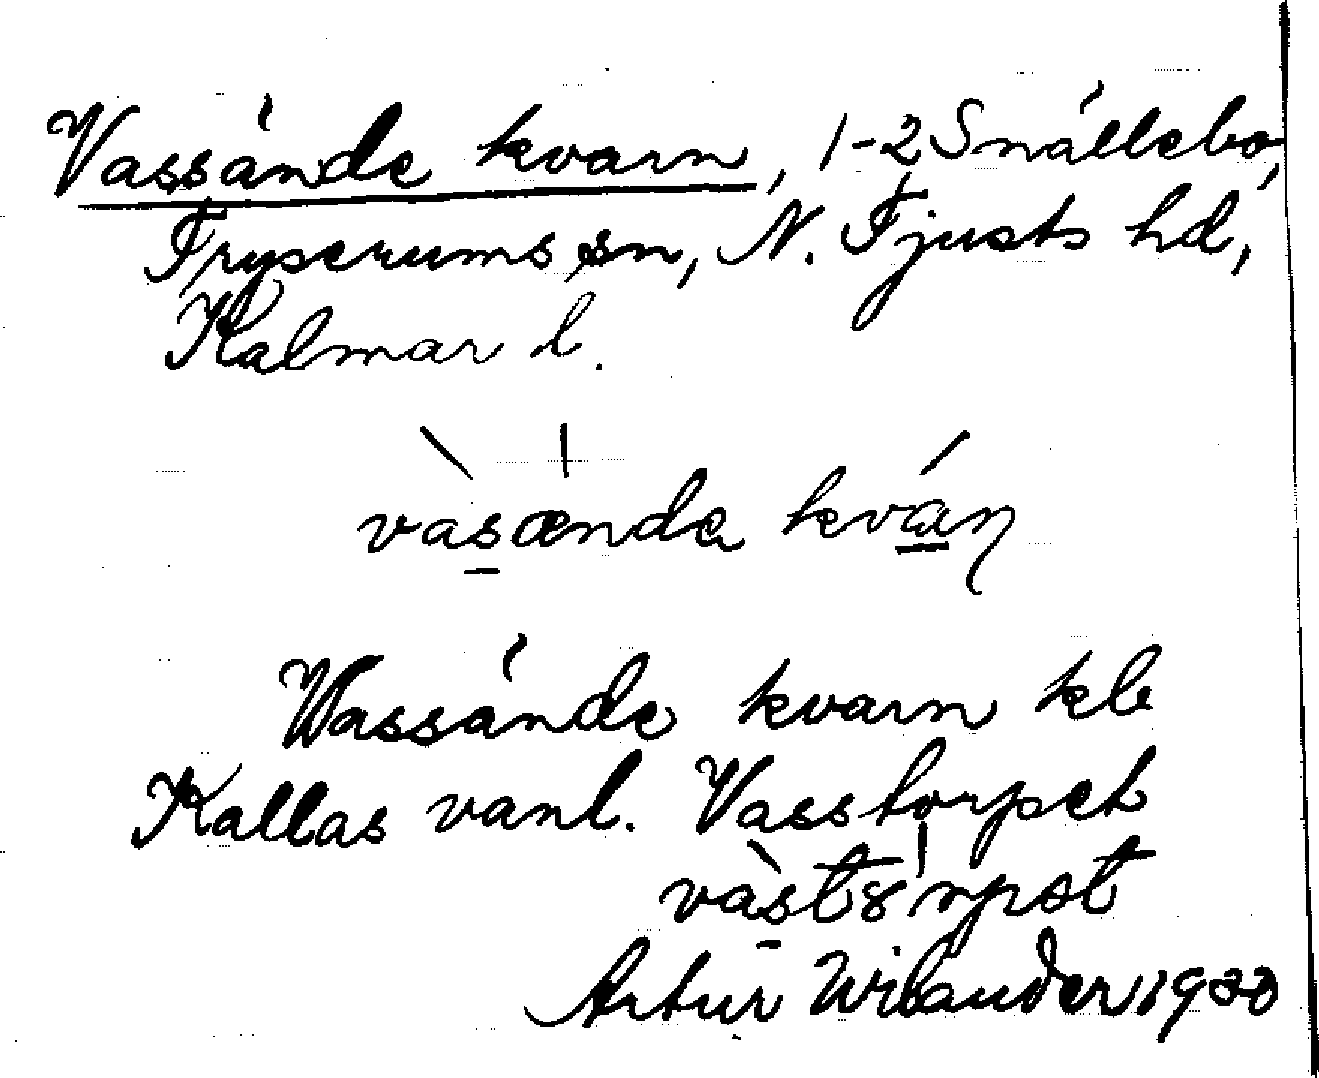 Vassände kvarn, 1-2 Snällebo,
Tryserums sn, N. Tjusts hd,
Kalmar l.
vasænda kván
Wassände kvarn kle
Kallas vanl. Vasstorpet
Artur Wilander 1930